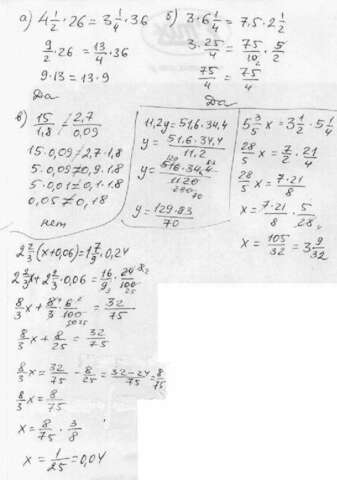 а) 4 1/2 · 26 = 3 1/4 · 36
9/2 · 26 = 13/4 · 36
9 · 13 = 13 · 9
Да
б) 3 · 6 1/4 = 7,5 · 2 1/2
3 · 25/4 = 75/10 · 5/2
75/4 = 75/4
Да
в) 15/1,8 ≠ 2,7/0,09
15 · 0,09 ≠ 2,7 · 1,8
5 · 0,09 ≠ 0,9 · 1,8
5 · 0,01 ≠ 0,1 · 1,8
0,05 ≠ 0,18
нет
11,2y = 51,6 · 34,4
y = 51,6 · 34,4 / 11,2
y = 516 · 34,4 / 1120
y = 129 · 83 / 70
5 3/5 x = 3 1/2 · 5 1/4
28/5 x = 7/2 · 21/4
28/5 x = 7 · 21 / 8
x = 7 · 21 / 8 · 5/28
x = 105/32 = 3 9/32
2 2/3 (x + 0,06) = 1 7/9 · 0,24
2 2/3 x + 2 2/3 · 0,06 = 16/9 · 24/100
8/3 x + 8/3 · 6/100 = 32/75
8/3 x + 8/25 = 32/75
8/3 x = 32/75 - 8/25 = 32-24/75 = 8/75
8/3 x = 8/75
x = 8/75 · 3/8
x = 1/25 = 0,04